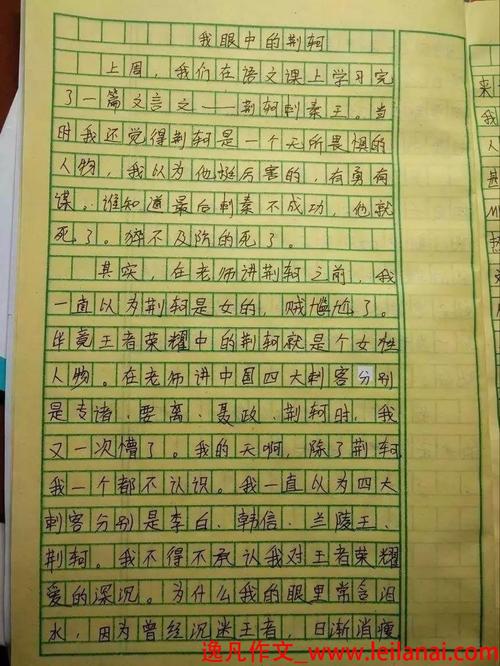 我眼中的荆轲
上周，我们在语文课上学习完
了一篇文言之——荆轲刺秦王。当
时我还觉得荆轲是一个无所畏惧的
人物，我以为他挺厉害的，有勇有
谋。谁知道最后刺秦不成功，他就
死了。猝不及防的死了。
其实，在老师讲荆轲之前，我
一直以为荆轲是女的，贼尴尬了。
毕竟王者荣耀中的荆轲就是个女性
人物。在老师讲中国四大刺客分别
是专诸、要离、聂政、荆轲时，我
又一次懵了。我的天啊，除了荆轲
我一个都不认识。我一直以为四大
刺客分别是李白、韩信、兰陵王、
荆轲。我不得不承认我对王者荣耀
爱的深沉。为什么我的眼里常含泪
水，因为曾经沉迷王者，日渐消瘦
来
我
甚
M
我
逸凡作文_www.leilanai.com